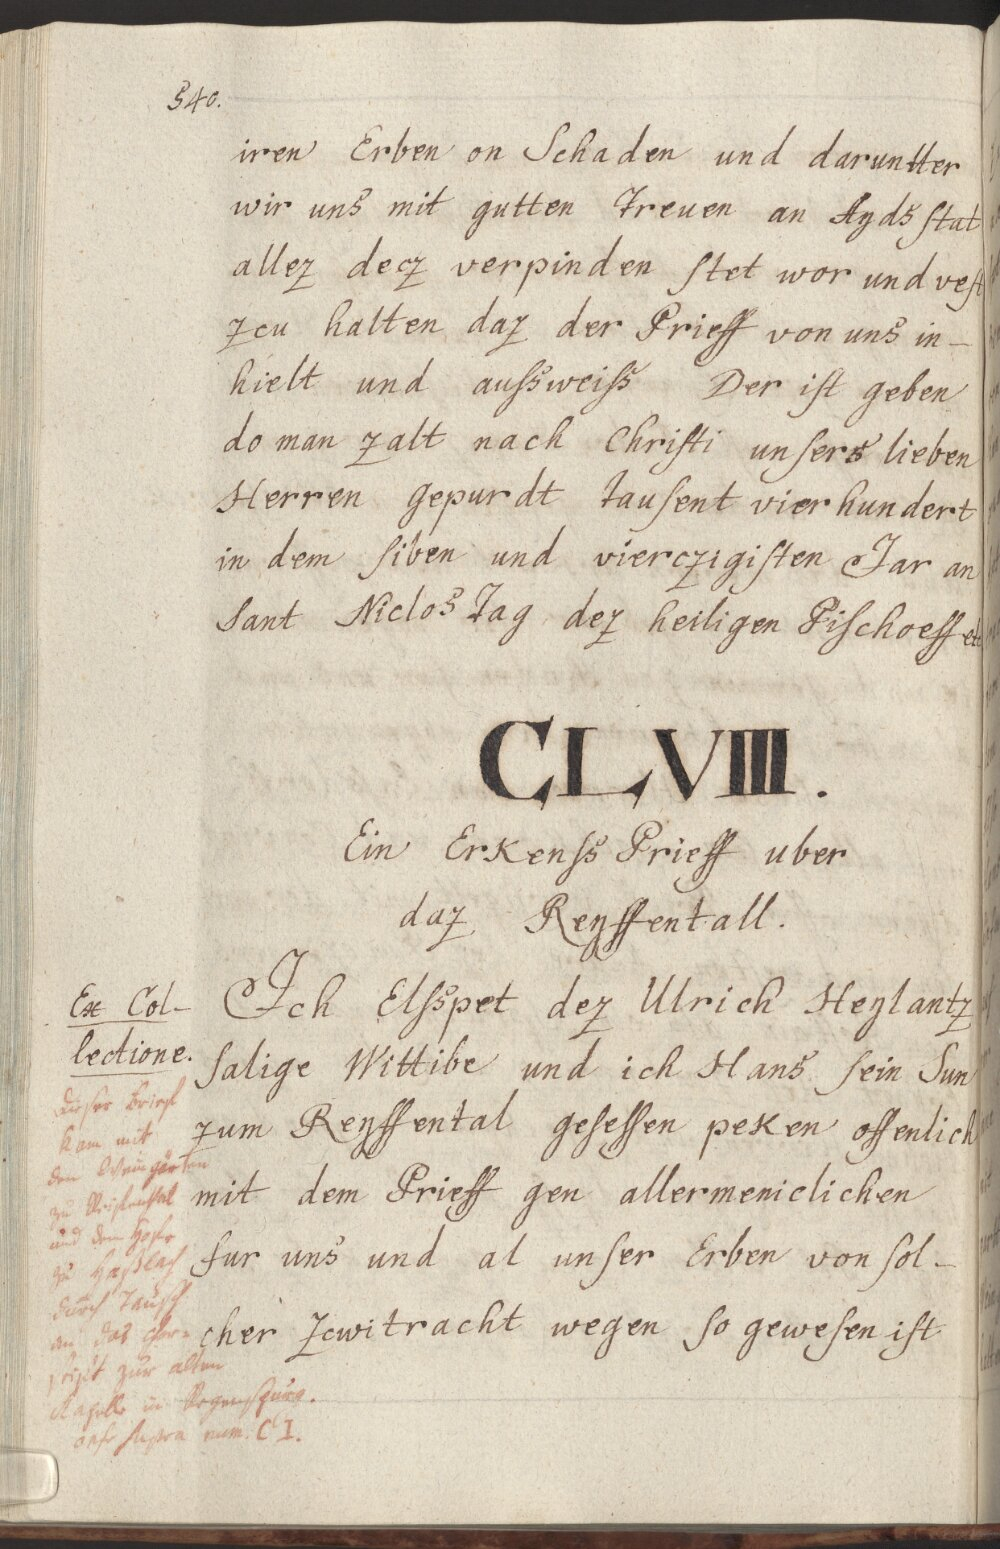 540.
iren Erben on Schaden und daruntter
wir uns mit gutten Treuen an Aydsstat
allez decz verpinden stet wor und vest
zcu halten daz der Prieff von uns in-
hielt und aussweiss Der ist geben
do man zalt nach Christi unsers lieben
Herren gepurdt tausent vierhundert
in dem siben und vierczigisten Jar an
Sant Niclos Tag dez heiligen Pischoeff etc
CLVIII.
Ein Erkenss Prieff uber
daz Reyffentall.
Ex Col-
lectione.
Ich Elsspet dez Ulrich Heylantz
salige Wittibe und ich Hans sein Sun
zum Reyffental gesessen peken offenlich
mit dem Prieff gen allermeniclichen
fur uns und al unser Erben von sol-
cher zcwitracht wegen so gewesen ist
dieser Brief
kam mit
den Weingärten
zu
und dem Hofe
zu Haslach
durch Tausch
an das Chor-
stift zur alten
Kapelle in Regensburg.
supra num. CI.